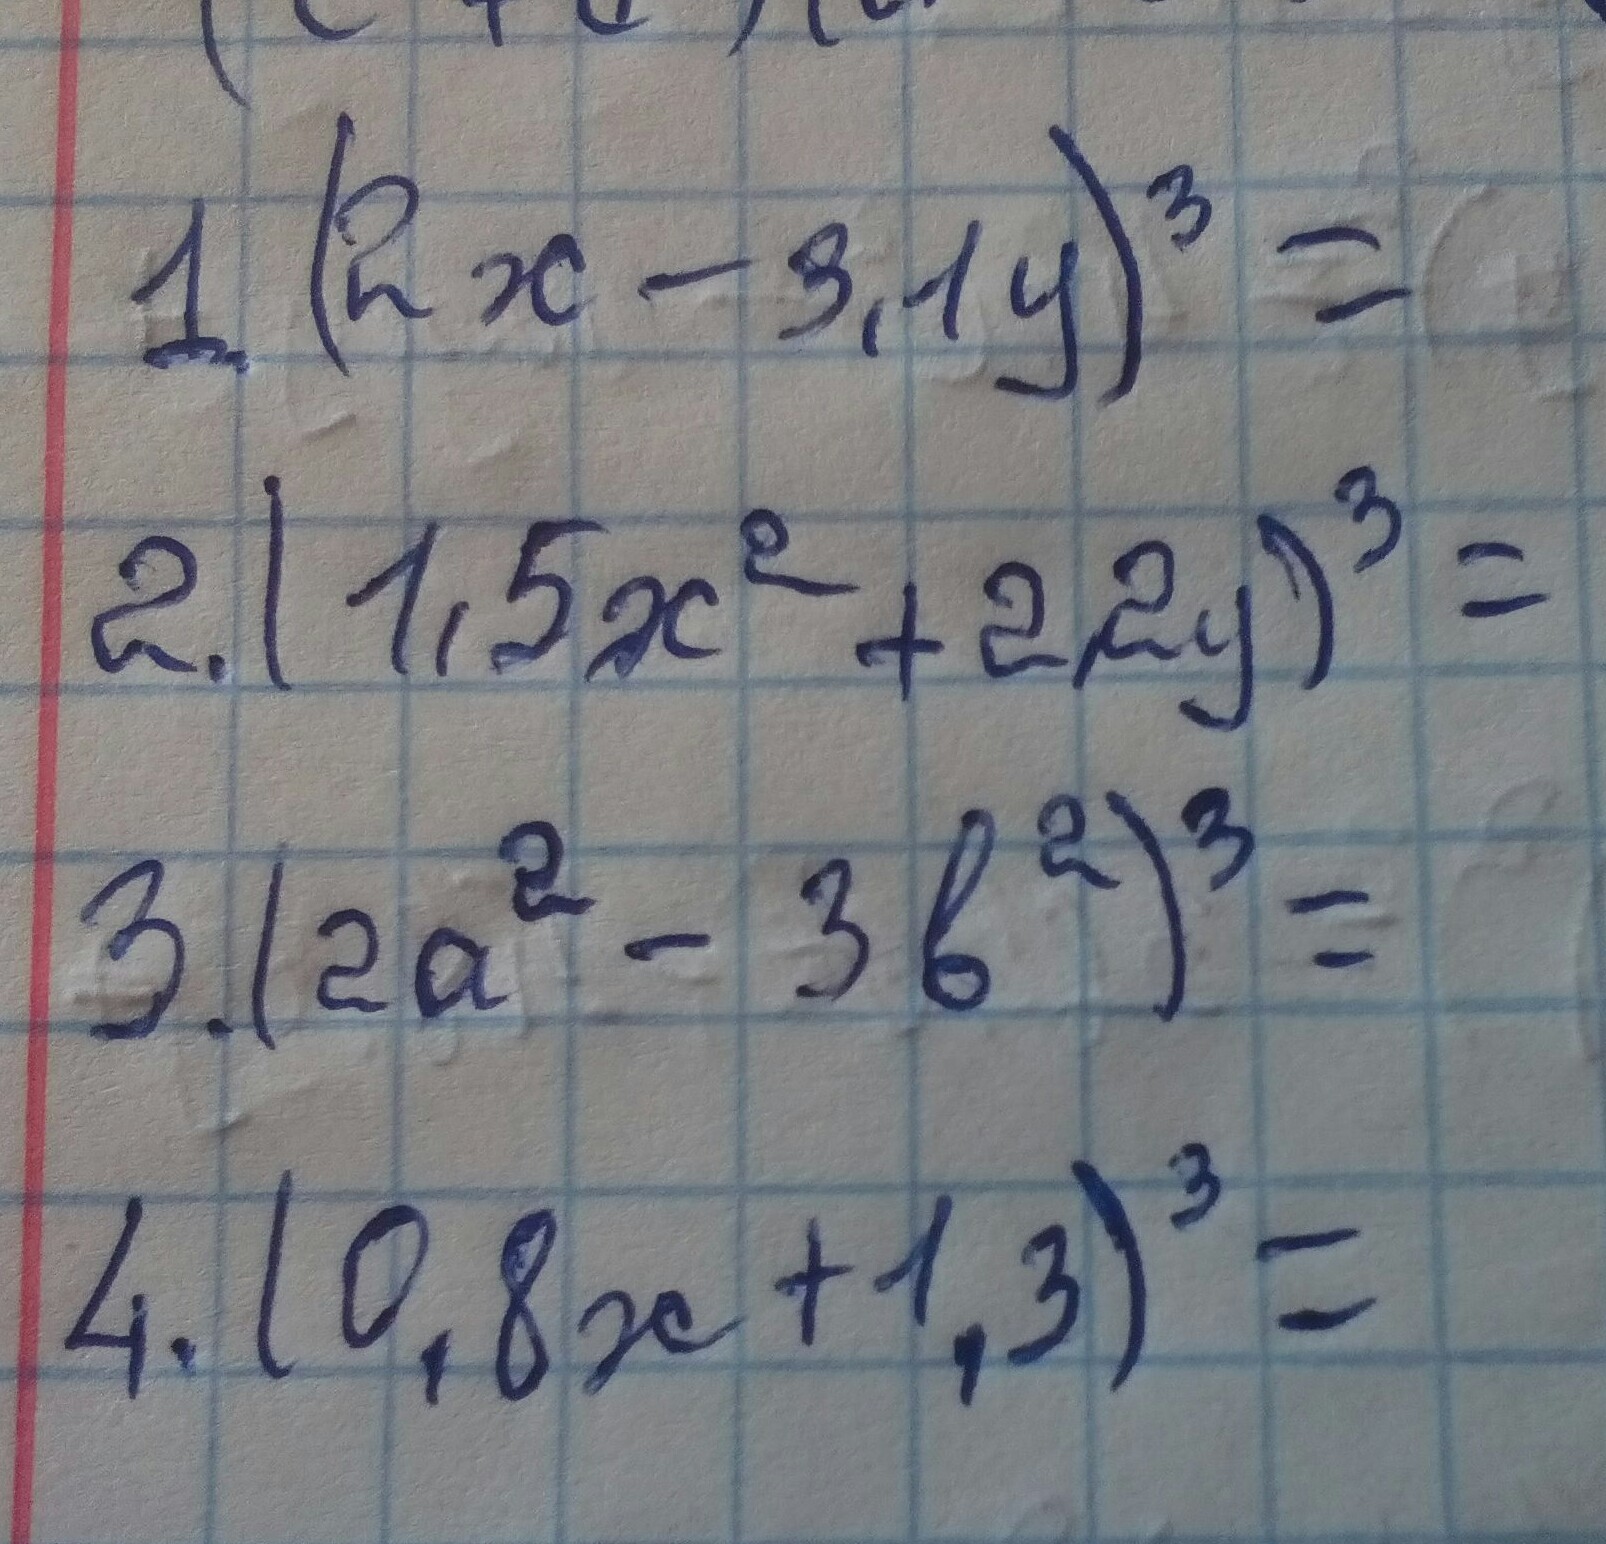 1. (2x - 3,1y)³ =
2. (1,5x² + 2,2y)³ =
3. (2a² - 3b²)³ =
4. (0,8x + 1,3)³ =